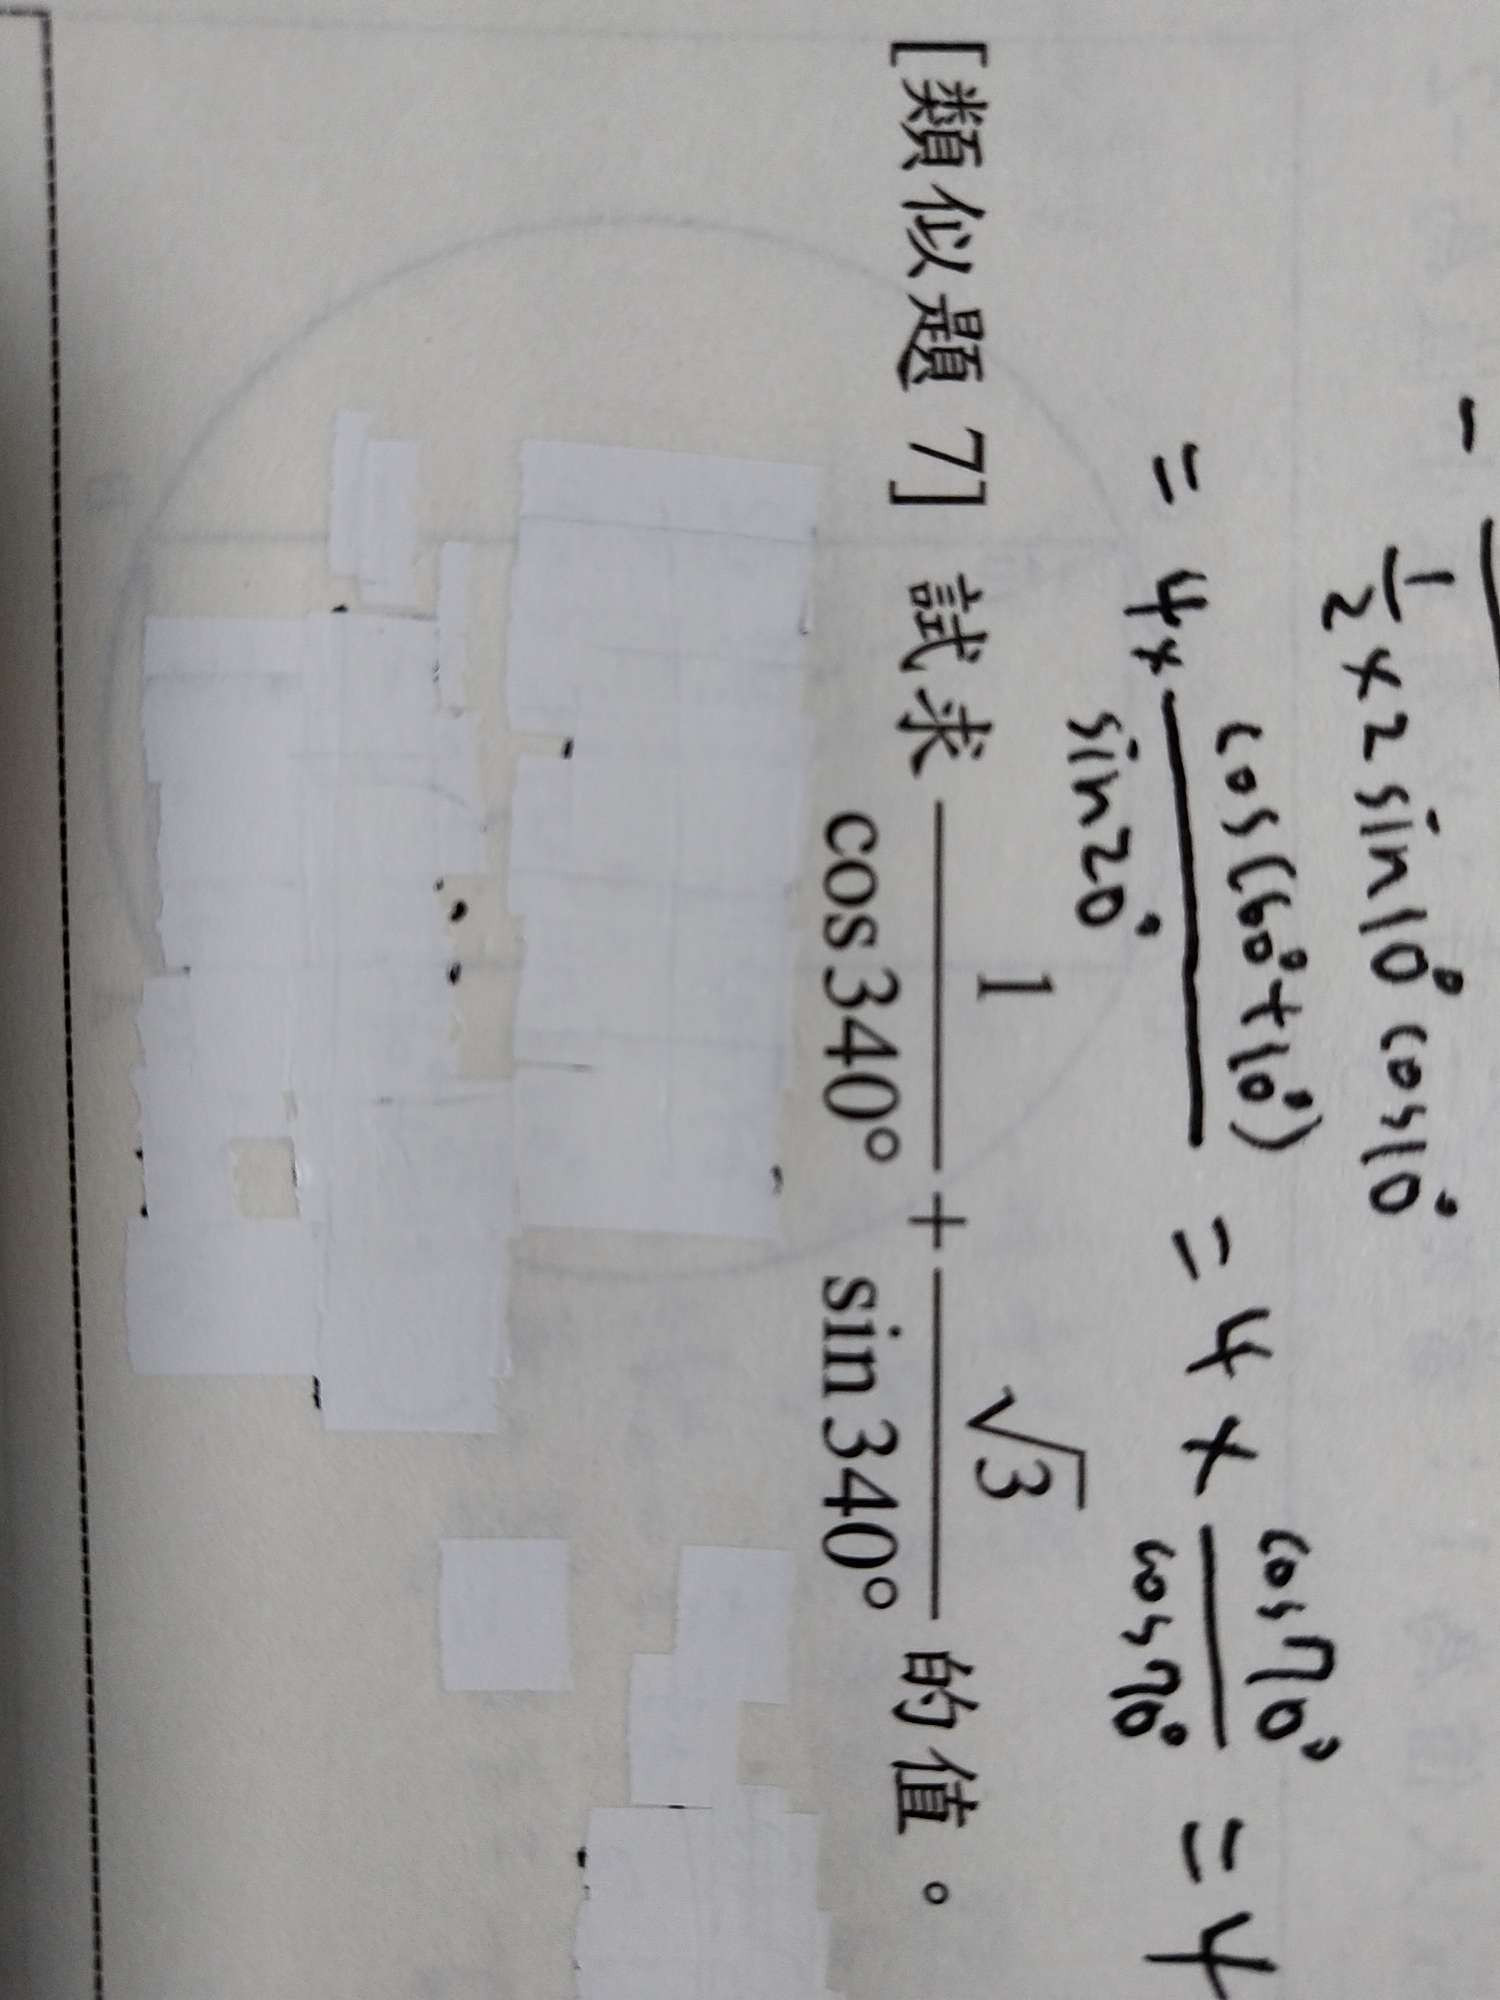 1/2 × 2 sin10° cos10°
= 4 × cos(60°+10°)/sin20° = 4 × cos70°/cos70° = 4
[類似題 7] 試求 1/cos340° + √3/sin340° 的值。